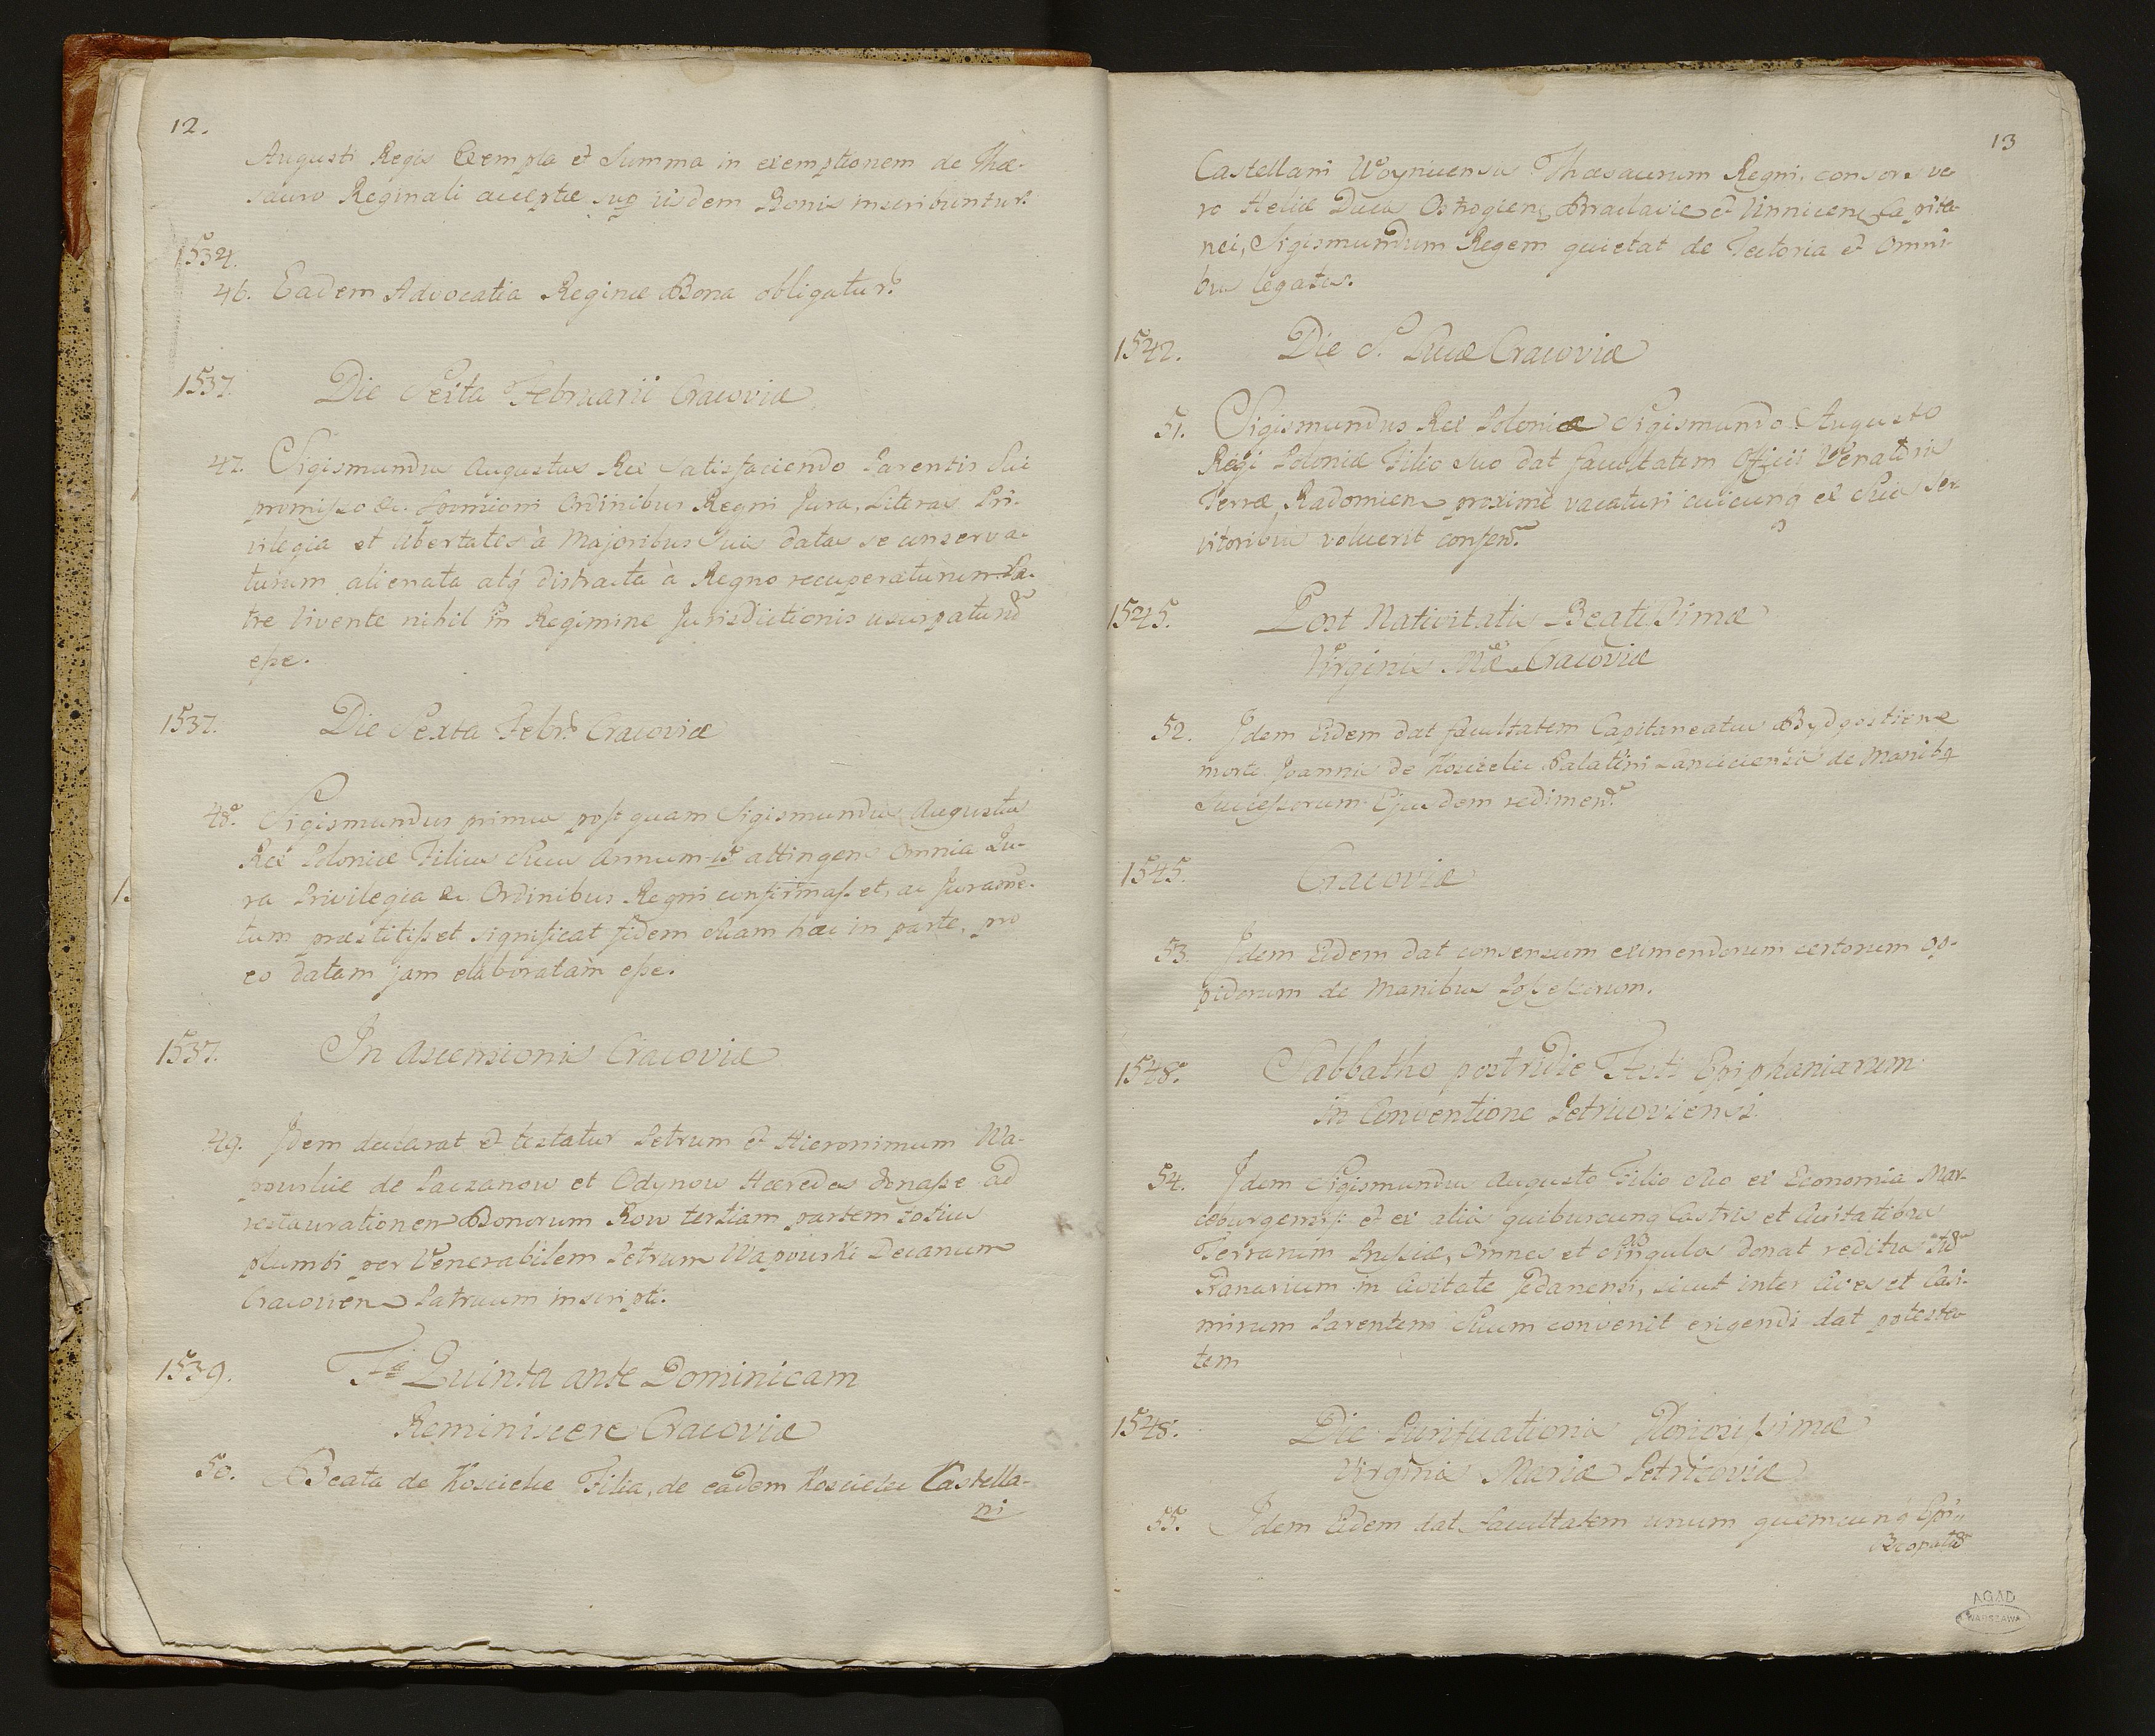 12.
Augusti Regis Exempta et Summa in exemptionem de Thæ-
sauro Reginali acceptæ sup iisdem Bonis inscribuntur.
1534.
46. Eadem Advocatia Reginæ Bona obligatur.
1537. Die Sexta Februarii Cracoviæ
47. Sigismundus Augustus Rex satisfaciendo Parentis Sui
promisso &c. Ordinibus Regni Jura, Literas Pri-
vilegia et libertates à Majoribus Suis datas se conserva-
turum alienata atq distracta à Regno recuperaturum Pa-
tre vivente nihil in Regimine Jurisdictionis usurpatur
esse.
1537. Die Sexta Febr. Cracoviæ
48. Sigismundus primus postquam Sigismundus Augustus
Rex Poloniæ Filius Suus Annum attingens Omnia Ju-
ra Privilegia &c. Ordinibus Regni confirmasset, ac Juramē-
tum præstitisset significat fidem suam hac in parte, pro
eo datam jam elaboratam esse.
1537. In Ascensionis Cracoviæ
49. Idem declarat et testatur Petrum et Hieronimum Wa-
powskie de Paczanow et Odynow Hæredes donasse ad
restaurationem Bonorum Row tertiam partem totius
plumbi per Venerabilem Petrum Wapowski Decanum
Cracovien Patruum inscripti.
1539. Fa Quinta ante Dominicam
Reminiscere Cracoviæ
50. Beata de Koscielec Filia, de eadem Koscielec Castella-
ni
13
Castellani Woynicensis Thæsaurum Regni, consors ve-
ro Heliæ Ducis Ostrogien Braclaviæ et Vinnicen Capita-
nei, Sigismundum Regem quietat de Tutoria et Omni-
bus legatis.
1542. Die S. Lucæ Cracoviæ
51. Sigismundus Rex Poloniæ Sigismundo Augusto
Regi Poloniæ Filio Suo dat facultatem Officii Venatoris
Terræ Radomien proximè vacaturi cuicunq ex Suis Ser-
vitoribus voluerit
1545. Post Nativitatis Beatissimæ
Virginis Mæ Cracoviæ
52. Idem Eidem dat facultatem Capitaneatus Bydgostien
morte Joannis de Koscielec Palatini Lanciciensis de Manibq
Successorum Ejusdem redimen.
1545. Cracoviæ
53. Idem Eidem dat consensum eximendorum certorum op-
pidorum de Manibus Possessorum.
1548. Sabbatho postridie Festi Epiphaniarum
in Conventione Petricoviensi
54. Idem Sigismundus Augusto Filio Suo ex Economia Mar-
ceburgensi et ex aliis quibuscunq Castris et Civitatibus
Terrarum Prussiæ, omnes et singulos donat reditus
Granarium in Civitate Gedanensi, sicut inter Cives et Casi-
mirum Parentem Suum convenit erigendi dat potesta-
tem
1548. Die Purificationis Gloriosissimæ
Virginis Mariæ Petricoviæ
55. Idem Eidem dat facultatem unum quemcunq Epi-
AGAD
WARSZAWA